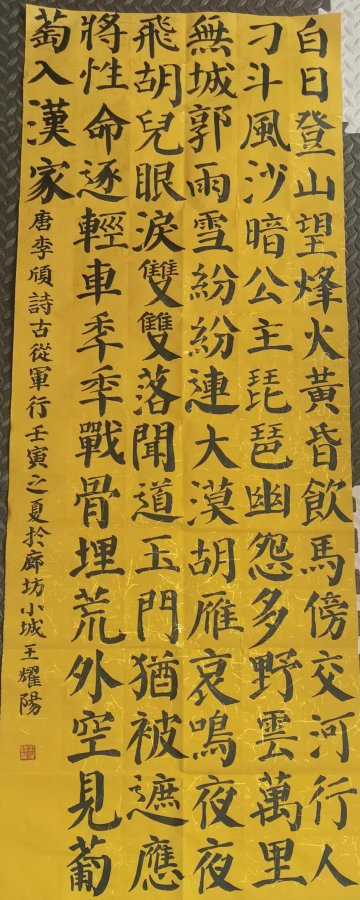 白日登山望烽火黃昏飲馬傍交河行人
刁斗風沙暗公主琵琶幽怨多野雲萬里
無城郭雨雪紛紛連大漠胡雁哀鳴夜夜
飛胡兒眼淚雙雙落聞道玉門猶被遮應
將性命逐輕車秊秊戰骨埋荒外空見葡
萄入漢家
唐李頎詩古從軍行壬寅之夏於廊坊小城王耀陽